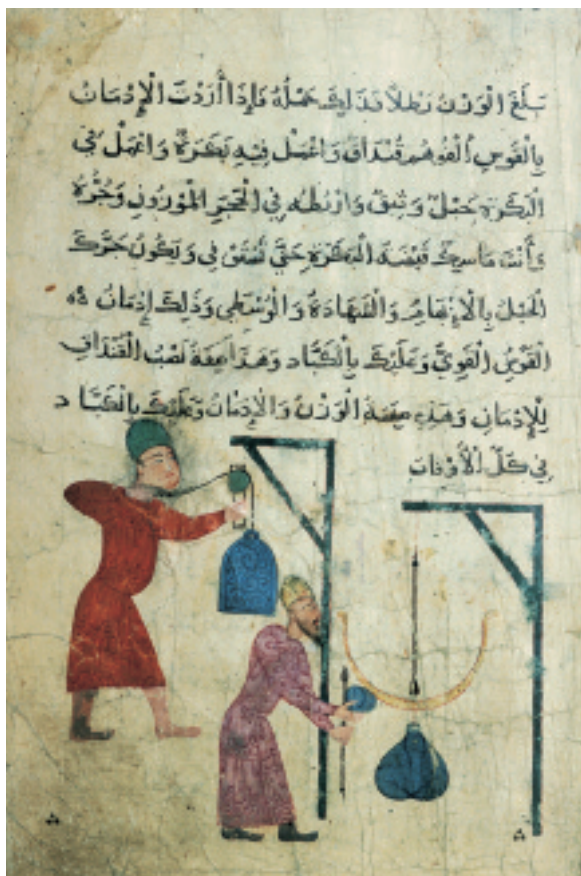 بَلَغَ الْوَزْنُ رَطْلاً فَذَلِكَ حَمْلُهُ فَإِذَا أَرَدْتَ الْإِدْمَانَ
بِالْقَوْسِ قُنْدَاقٌ وَاعْمَلْ فِيهِ بَكَرَةً وَاعْمَلْ فِي
الْبَكَرَةِ حَبْلٌ وَثِيقٌ وَارْبُطْهُ فِي الْحَجَرِ الْمَوْزُونِ وَجُرَّهُ
وَأَنْتَ مَاسِكٌ قَبْضَةَ الْبَكَرَةِ حَتَّى وَيَكُونُ جَرَّكَ
الْحَبْلَ بِالْإِبْهَامِ وَالشَّهَادَةُ وَالْوُسْطَى وَذَلِكَ إِدْمَانُ
الْقَوْسِ الْقَوِيِّ وَعَلَيْكَ بِالْكَبَّادِ وَهَذَا صِفَةُ نَصْبُ الْقُنْدَاقِ
لِلْإِدْمَانِ وَهَذِهِ صِفَةُ الْوَزْنُ وَالْإِدْمَانُ وَعَلَيْكَ بِالْكَبَّادِ
فِي كُلِّ الْأَوْقَاتِ